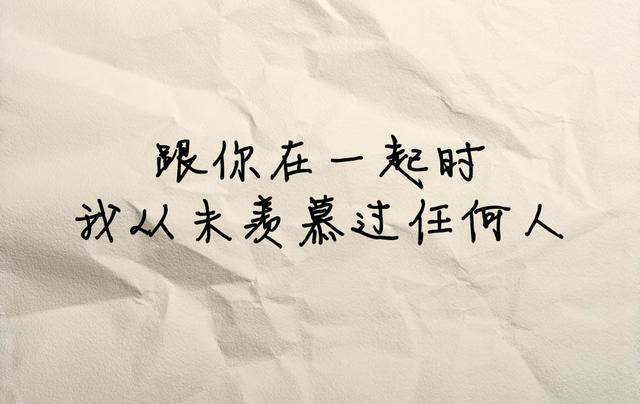 跟你在一起时
我从未羡慕过任何人